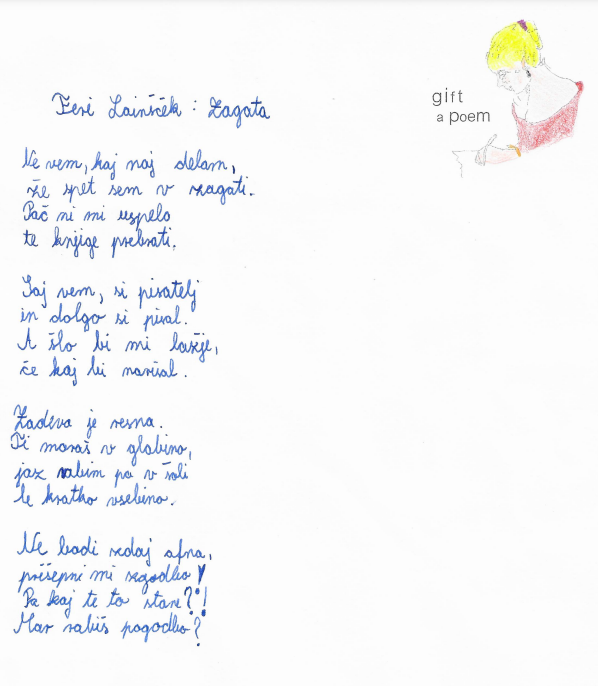 gift
a poem
Feri Lainšček : Zagata
Ne vem, kaj naj delam,
že spet sem v zagati.
Pač ni mi uspelo
te knjige prebrati.
Saj vem, si pisatelj
in dolgo si pisal.
A šlo bi mi lažje,
če kaj bi narisal.
Zadeva je resna.
Ti moraš v globino,
jaz rabim pa v šoli
le kratko vsebino.
Ne bodi zdaj afna,
prišepni mi zgodbo!
Pa kaj te to stane?!
Mar rabiš pogodbo?